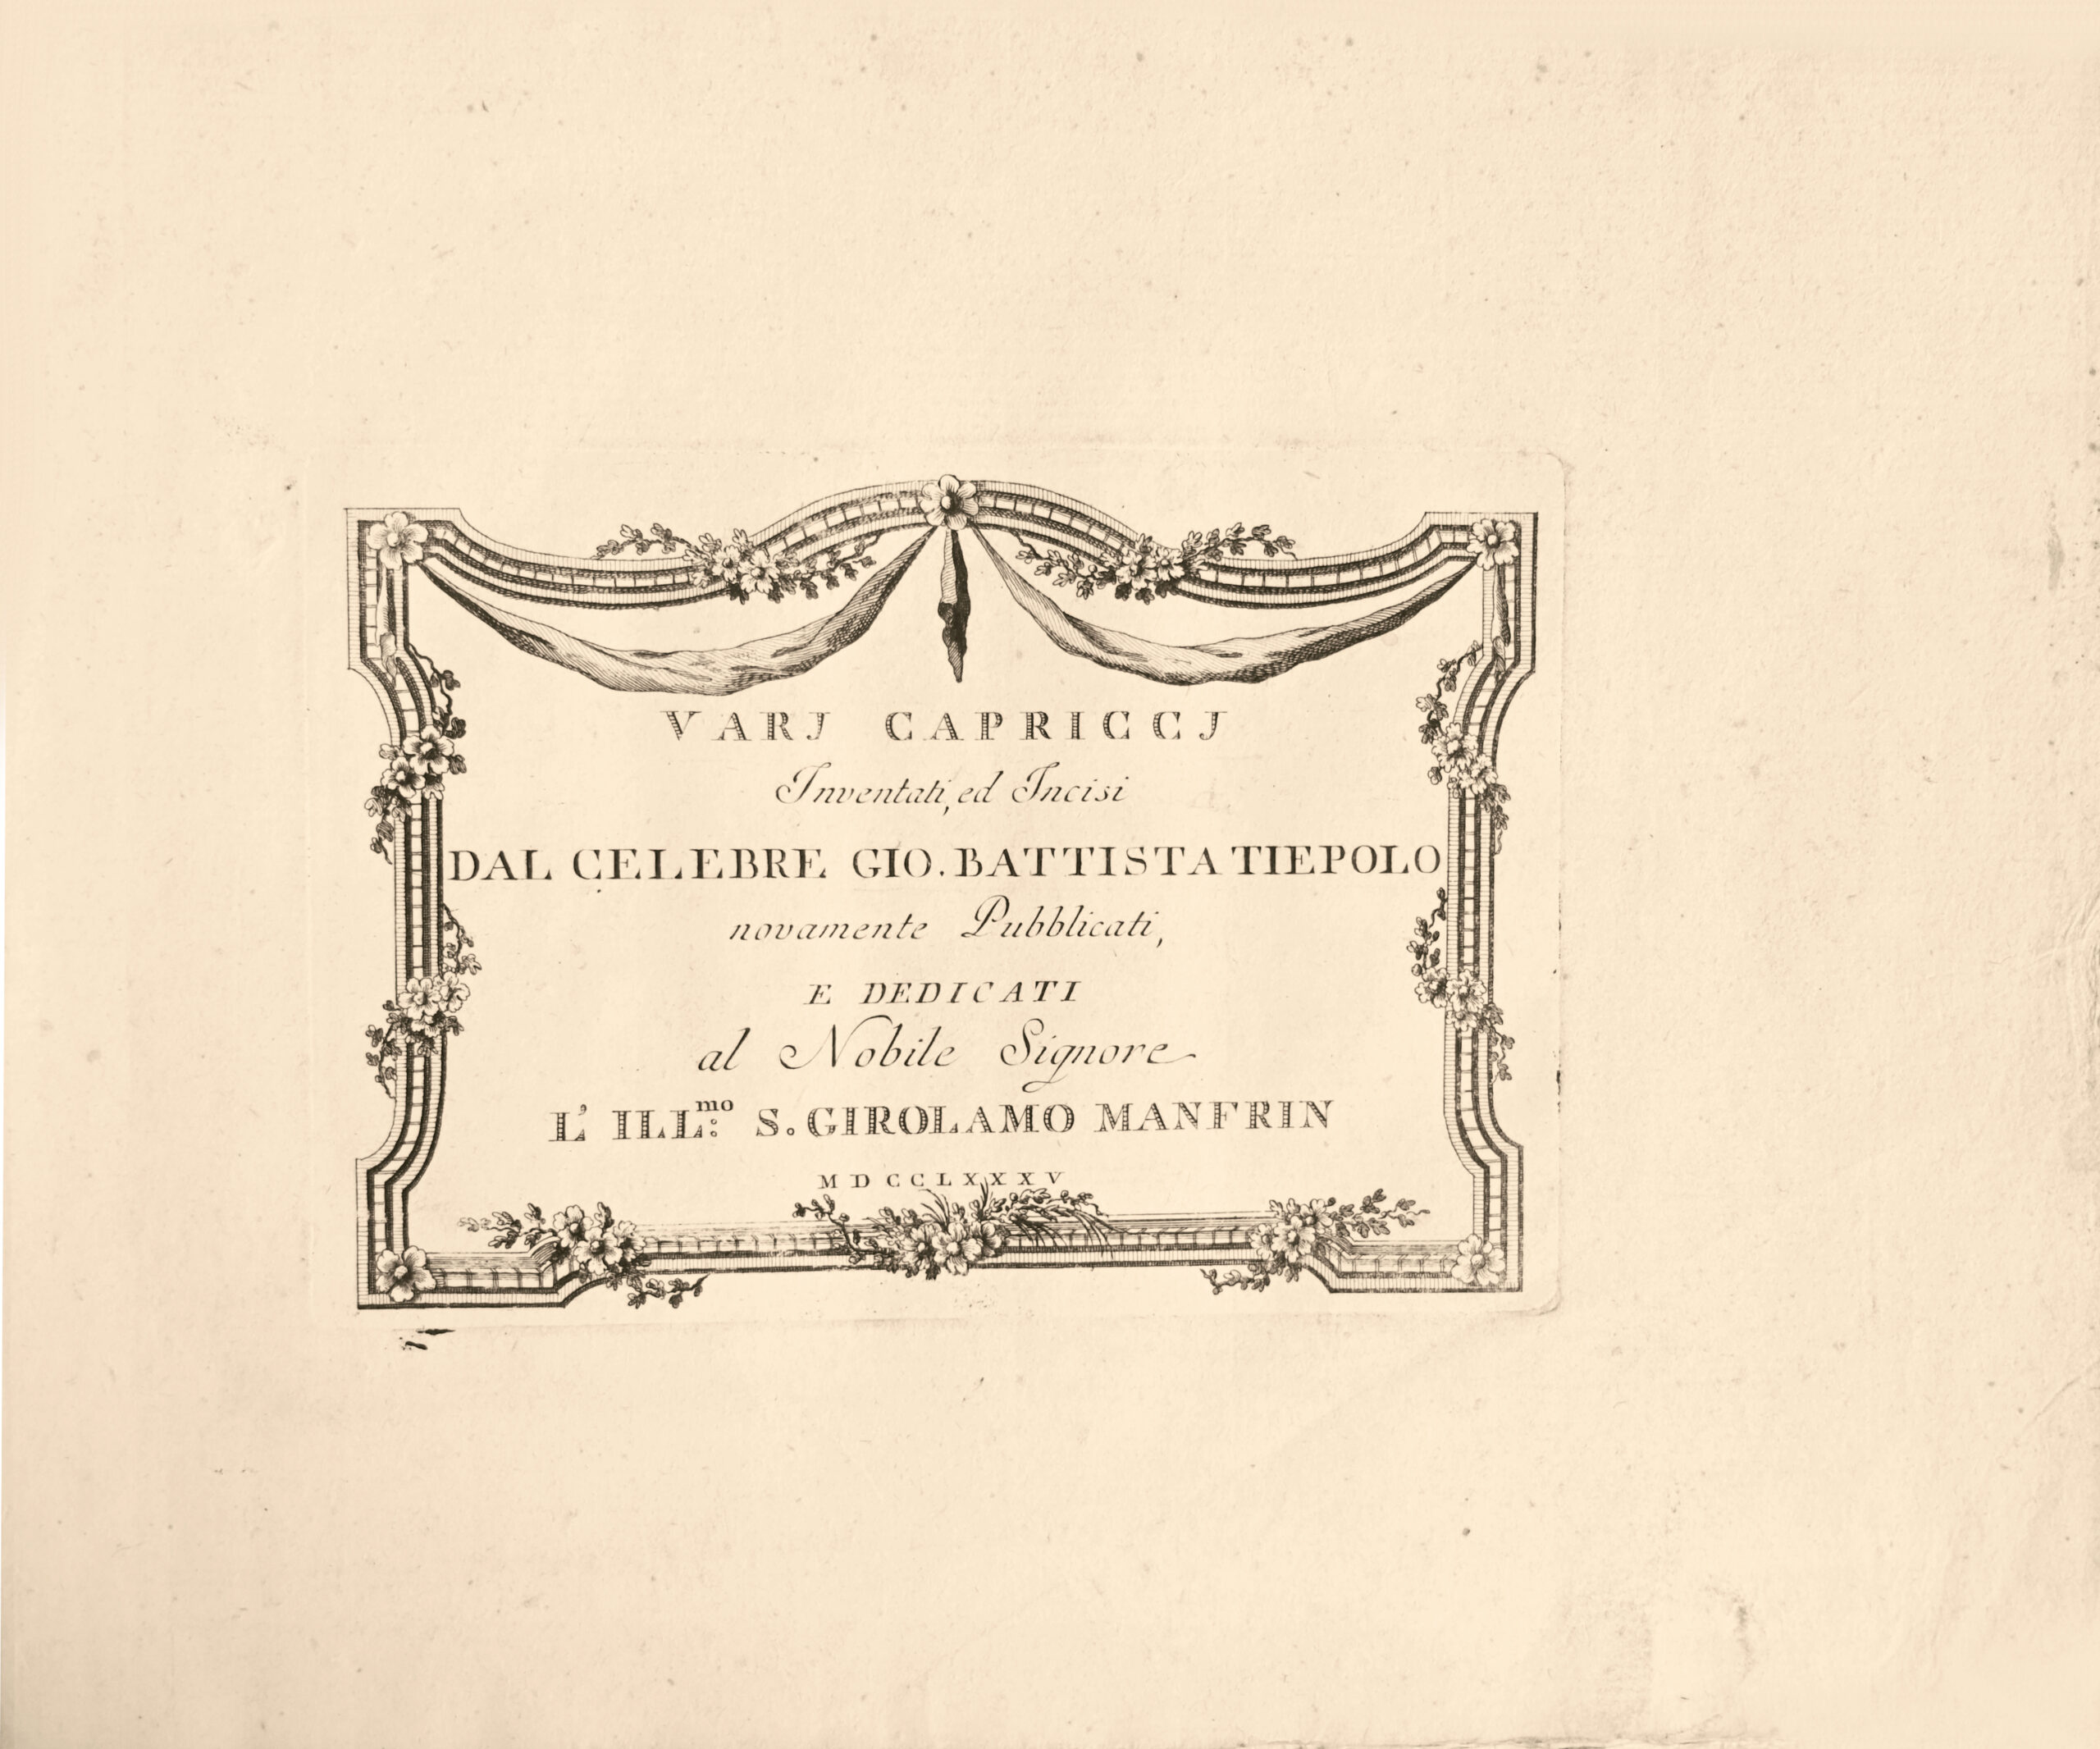 VARJ CAPRICCJ
Inventati, ed Incisi
DAL CELEBRE GIO. BATTISTA TIEPOLO
novamente Pubblicati,
E DEDICATI
al Nobile Signore
L' ILL:mo S. GIROLAMO MANFRIN
MDCCLXXXV